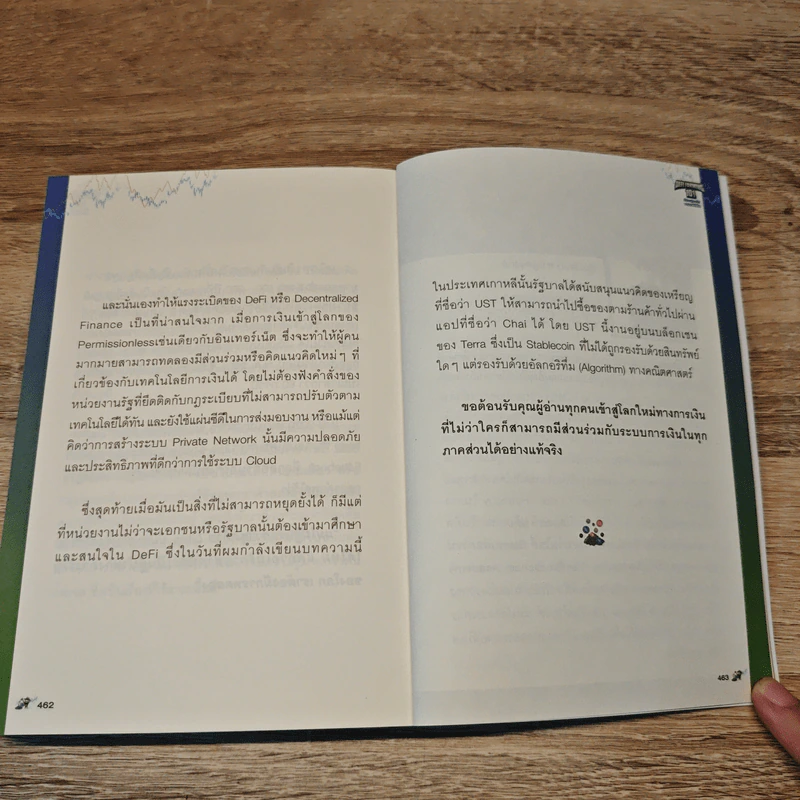 และนั่นเองทำให้แรงระเบิดของ DeFi หรือ Decentralized
Finance เป็นที่น่าสนใจมาก เมื่อการเงินเข้าสู่โลกของ
Permissionlessเช่นเดียวกับอินเทอร์เน็ต ซึ่งจะทำให้ผู้คน
มากมายสามารถทดลองมีส่วนร่วมหรือคิดแนวคิดใหม่ๆ ที่
เกี่ยวข้องกับเทคโนโลยีการเงินได้ โดยไม่ต้องฟังคำสั่งของ
หน่วยงานรัฐที่ยึดติดกับกฎระเบียบที่ไม่สามารถปรับตัวตาม
เทคโนโลยีได้ทัน และยังใช้แผ่นซีดีในการส่งมอบงาน หรือแม้แต่
คิดว่าการสร้างระบบ Private Network นั้นมีความปลอดภัย
และประสิทธิภาพที่ดีกว่าการใช้ระบบ Cloud
ซึ่งสุดท้ายเมื่อมันเป็นสิ่งที่ไม่สามารถหยุดยั้งได้ ก็มีแต่
ที่หน่วยงานไม่ว่าจะเอกชนหรือรัฐบาลนั้นต้องเข้ามาศึกษา
และสนใจใน DeFi ซึ่งในวันที่ผมกำลังเขียนบทความนี้
462
ในประเทศเกาหลีนั้นรัฐบาลได้สนับสนุนแนวคิดของเหรียญ
ที่ชื่อว่า UST ให้สามารถนำไปซื้อของตามร้านค้าทั่วไปผ่าน
แอปที่ชื่อว่า Chai ได้ โดย UST นี้งานอยู่บนบล็อกเชน
ของ Terra ซึ่งเป็น Stablecoin ที่ไม่ได้ถูกรองรับด้วยสินทรัพย์
ใดๆ แต่รองรับด้วยอัลกอริทึ่ม (Algorithm) ทางคณิตศาสตร์
ขอต้อนรับคุณผู้อ่านทุกคนเข้าสู่โลกใหม่ทางการเงิน
ที่ไม่ว่าใครก็สามารถมีส่วนร่วมกับระบบการเงินในทุก
ภาคส่วนได้อย่างแท้จริง
463